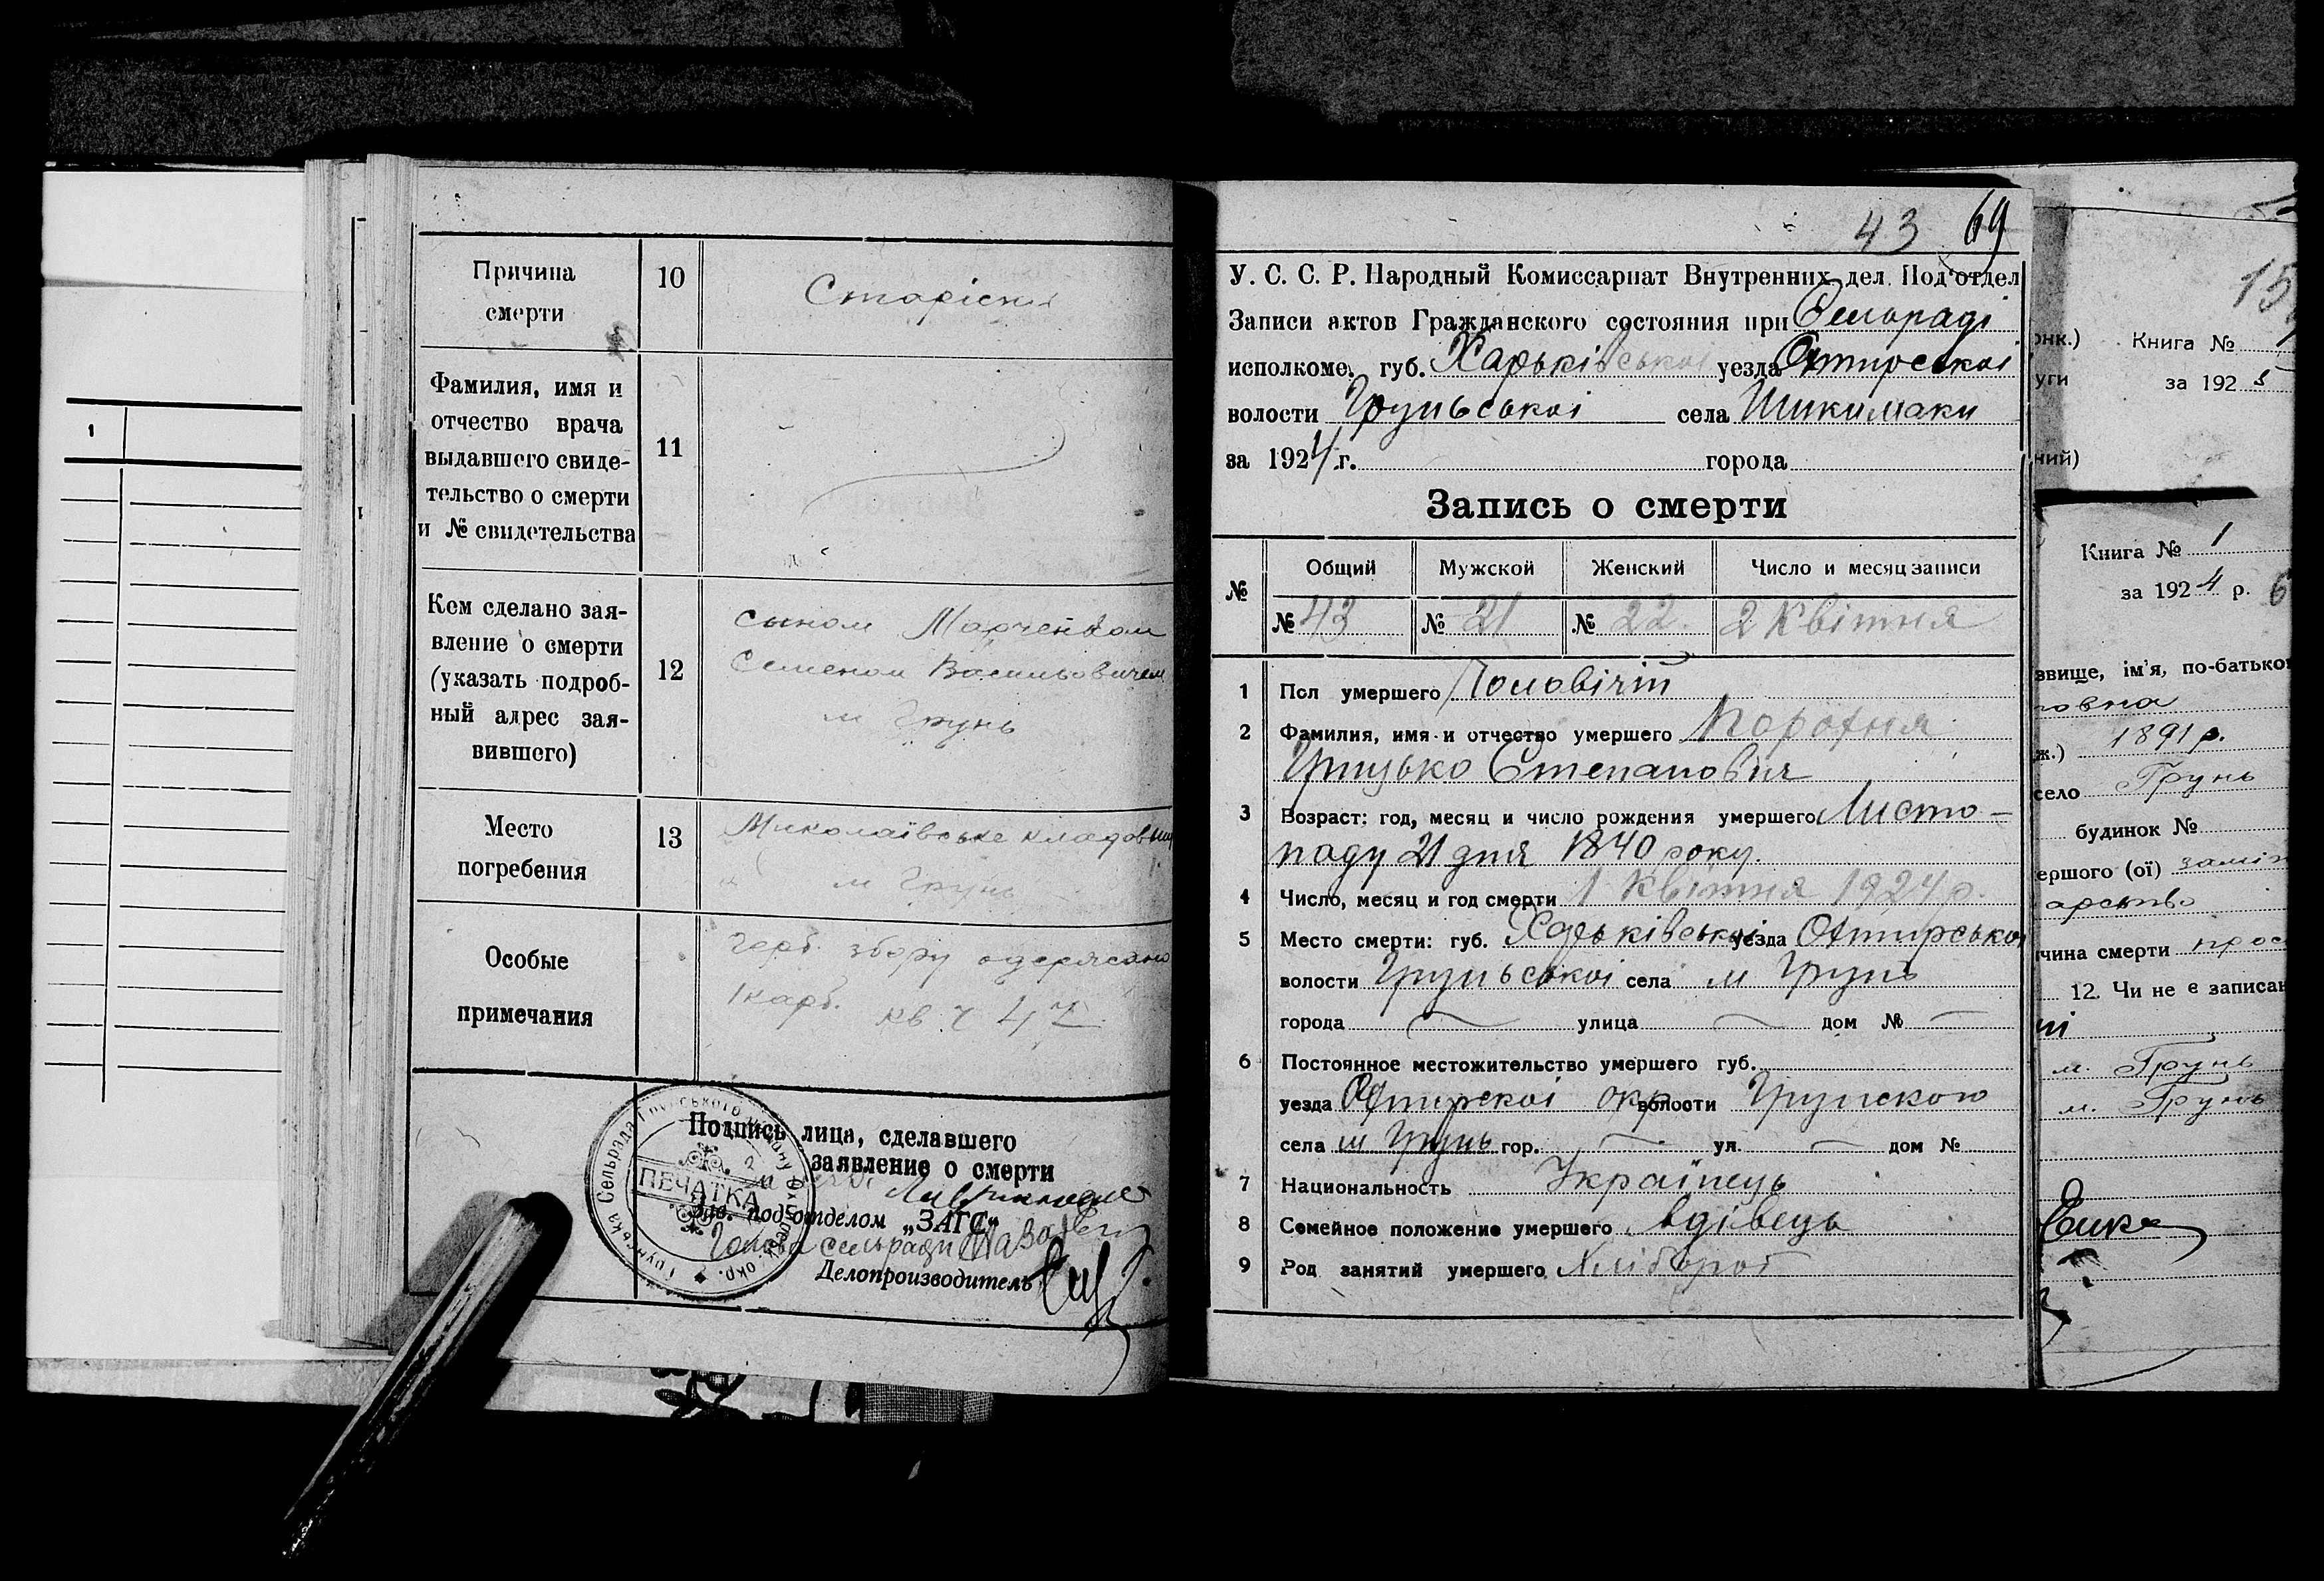 1
Причина
смерти
10
Старість
Фамилия, имя и
отчество врача
выдавшего свиде-
тельство о смерти
и № свидетельства
11
Кем сделано зая-
вление о смерти
(указать подроб-
ный адрес зая-
вившего)
12
сыном Марченком
Семеном Васильовичем
м Грунь
Место
погребения
13
Миколаївське кладовищ
м Грунь
Особые
примечания
Герб. збору одержано
1 карб. кв ч 47
Подпись лица, сделавшего
заявление о смерти
ПЕЧАТКА
Зав. под'отделом „ЗАГС"
Голова сельради
Делопроизводитель
43 69
У. С. С. Р. Народный Комиссариат Внутренних дел. Под'отдел
Записи актов Гражданского состояния при Сельраді
исполкоме. губ. Харьківськоі уезда Охтирскоі
волости Груньськоі села
за 1924 г. города
Запись о смерти
№ Общий Мужской Женский Число и месяц записи
№ 43 № 21 № 22 2 Квітня
1 Пол умершего Чоловічій
2 Фамилия, имя и отчество умершего
Грицько Степанович
3 Возраст: год, месяц и число рождения умершего Листо-
паду 21 дня 1840 року.
4 Число, месяц и год смерти 1 Квітня 1924 р.
5 Место смерти: губ. Харьківськоі уезда Охтирськоі
волости Груньськоі села м Грунь
города улица дом №
6 Постоянное местожительство умершего губ.
уезда Охтирскоі окр волости Грунского
села м Грунь гор. ул. дом №
7 Национальность Українець
8 Семейное положение умершего Вдівець
9 Род занятий умершего Хлібороб
онк.) Книга №
уги за 192 5
ний)
Книга № 1
за 1924 р. 6
звище, ім'я, по-батько
овна
ж.) 1891 р.
село Грунь
будинок №
ершого (ої)
чина смерти
12. Чи не є записан
м. Грунь
м. Грунь